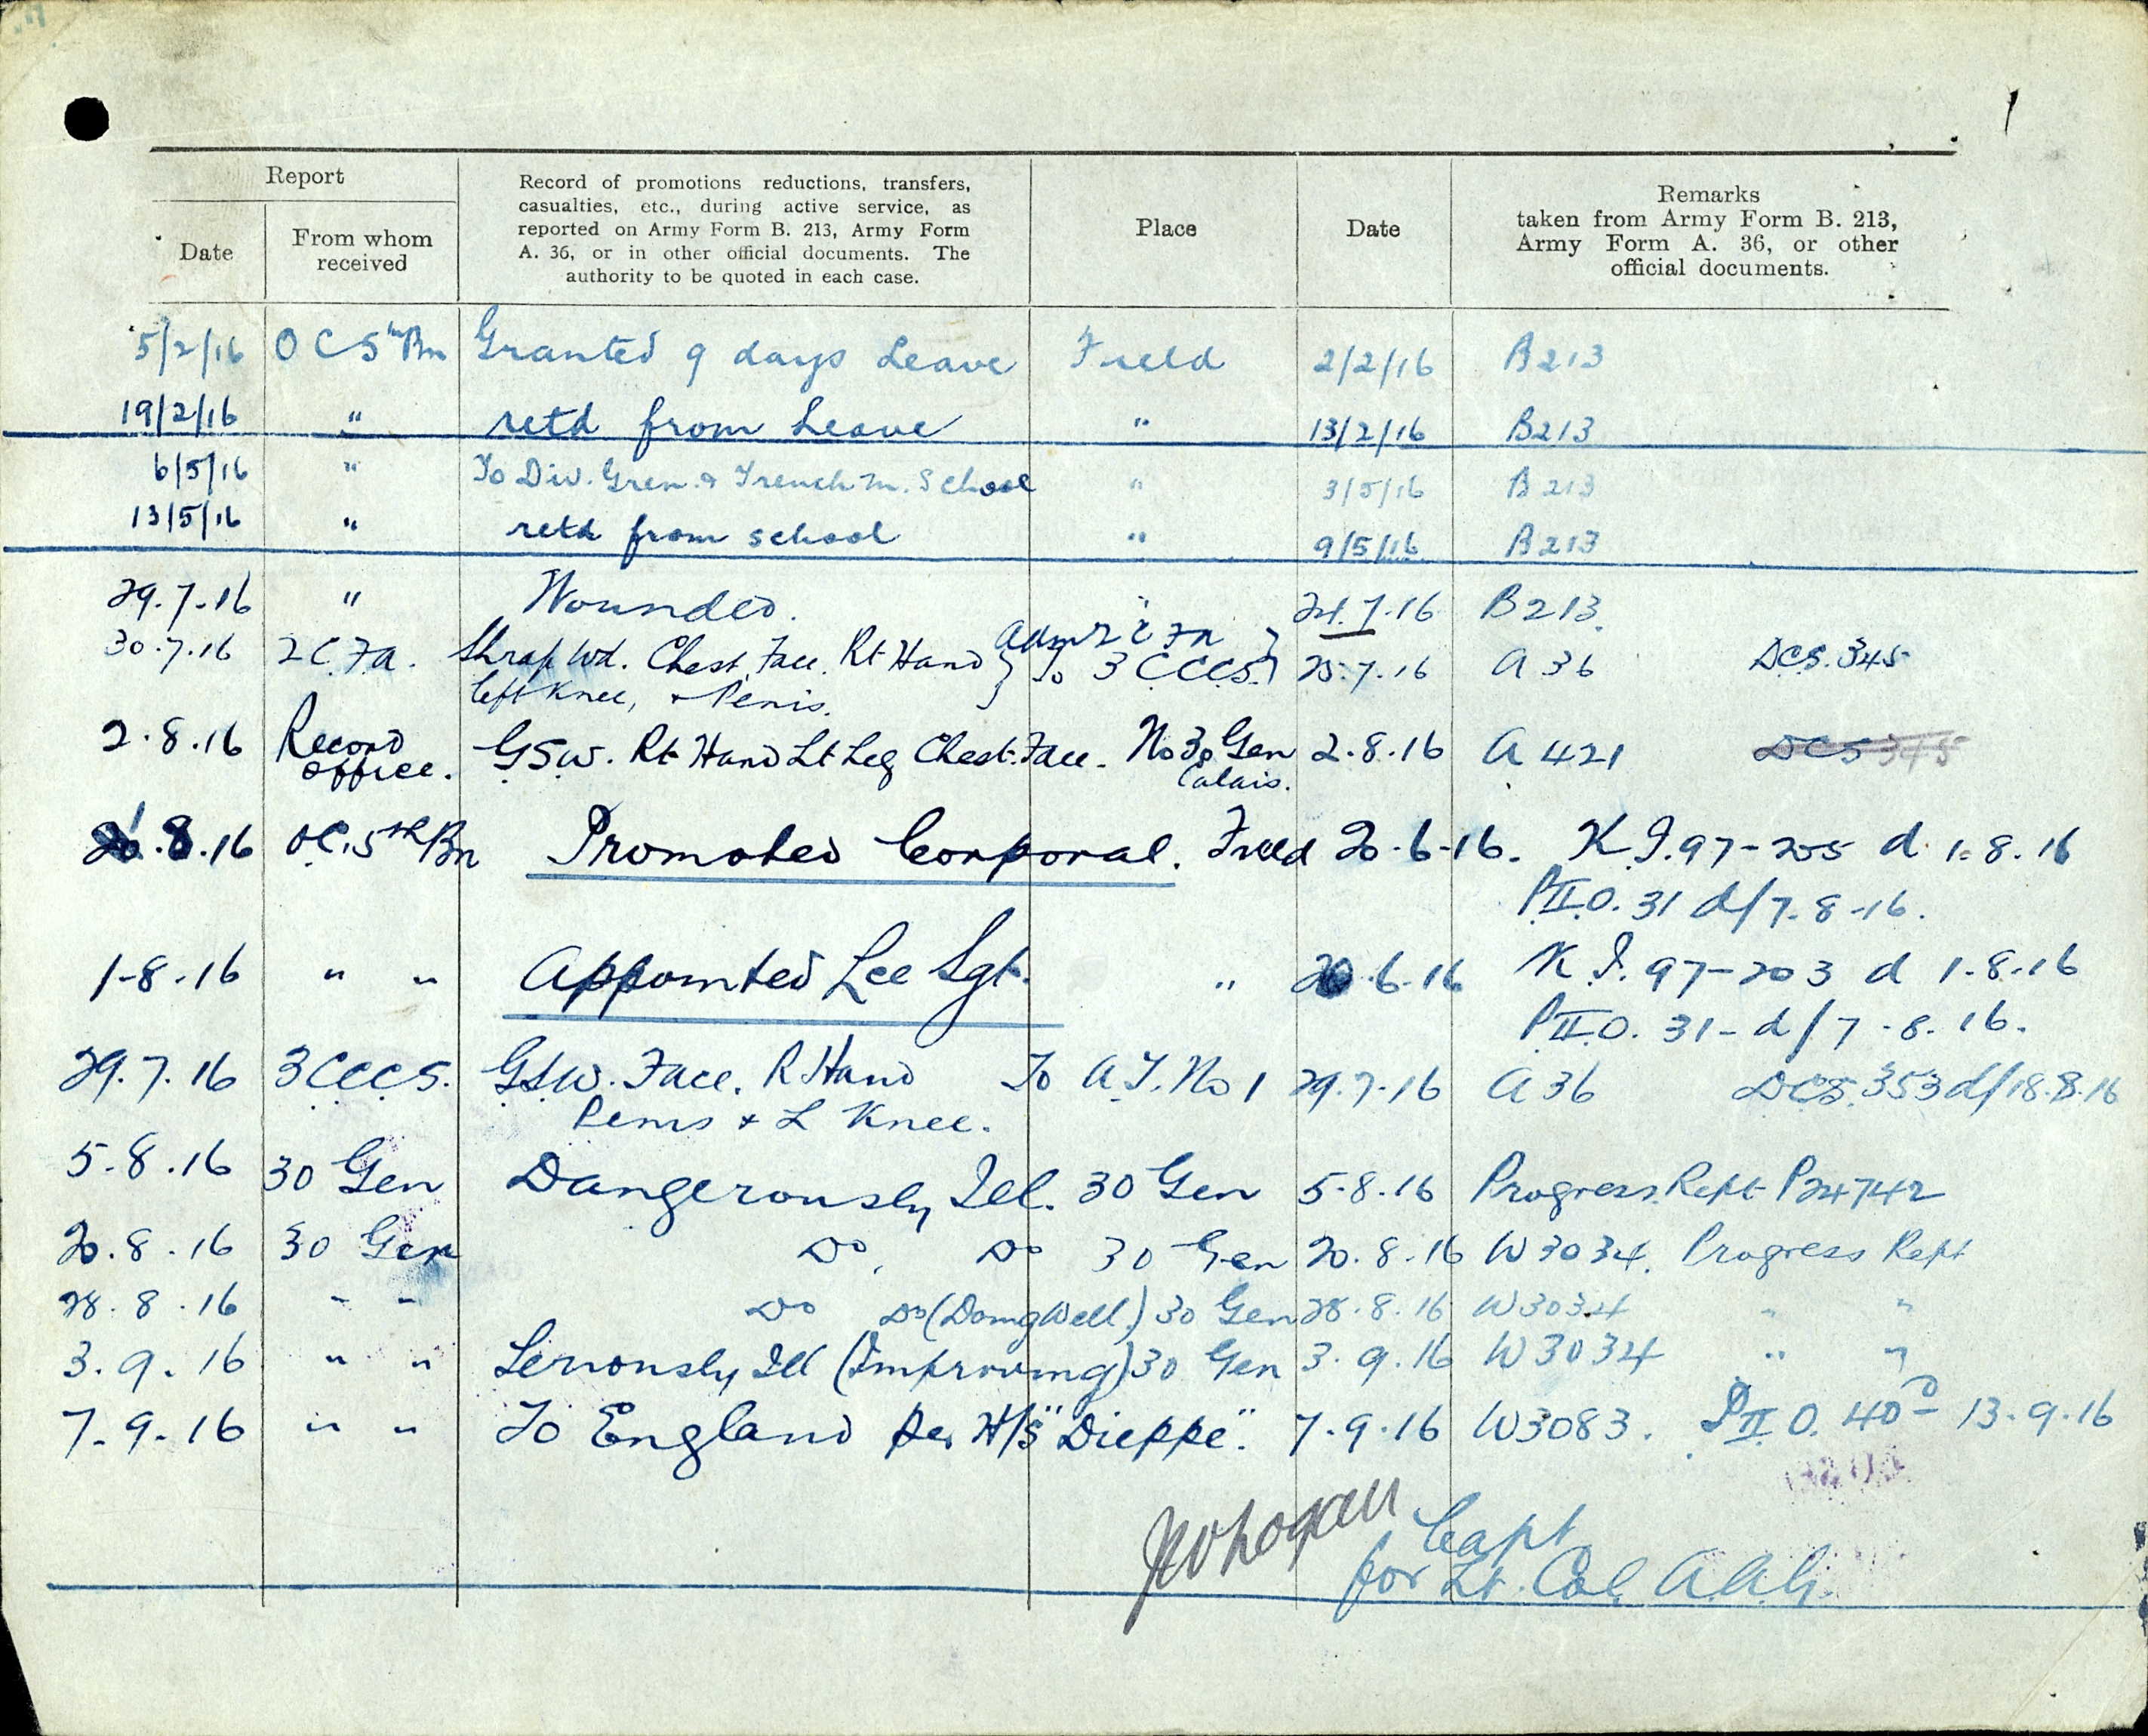 Report
Date
From whom
received
Record of promotions reductions, transfers,
casualties, etc., during active service, as
reported on Army Form B. 213, Army Form
A. 36, or in other official documents. The
authority to be quoted in each case.
Place
Date
Remarks
taken from Army Form B. 213,
Army Form A. 36, or other
official documents.
5/2/16 O C 5th Bn Granted 9 days Leave Field 2/2/16 B213
19/2/16 " retd from Leave " 13/2/16 B213
6/5/16 " To Div. Gren. & Trench M. School " 3/5/16 B213
13/5/16 " retd from school " 9/5/16 B213
29.7.16 " Wounded. " 24.7.16 B213.
30.7.16 2 C.F.A. Shrap Wd. Chest, Face, Rt Hand } Adm 2 C FA }
left Knee, & Penis. To 3 CCCS. 25.7.16 A 36 DCS. 345
2.8.16 Record GSW. Rt Hand Lt Leg Chest. Face. No 30 Gen 2.8.16 A 421 DCS 345
office. Calais.
8.16 OC. 5th Bn Promoted Corporal. Field 20.6-16. K I. 97-205 d. 1.8.16
P.II.O. 31 d/7-8-16.
1-8.16 " " Appointed Lce Sgt. " 20.6.16 K I. 97-203 d 1.8.16
P.II.O. 31-d/7-8.16.
29.7.16 3 CCCS. GSW. Face. R Hand To A.T. No 1 29.7.16 A 36 DCS. 353 d/18.8.16
Penis & L Knee.
5.8.16 30 Gen Dangerously Ill. 30 Gen 5.8.16 Progress. Rept P24742
20.8.16 30 Gen Do. Do 30 Gen 20.8.16 W3034. Progress Rept
28.8.16 " " Do Do (Doing Well.) 30 Gen 28.8.16 W3034 " "
3.9.16 " " Seriously Ill (Improving) 30 Gen 3.9.16 W3034 " "
7.9.16 " " To England per H/S "Dieppe". 7.9.16 W3083. P.II.O. 40 D 13.9.16
Capt
for Lt. Col. A.A.G.